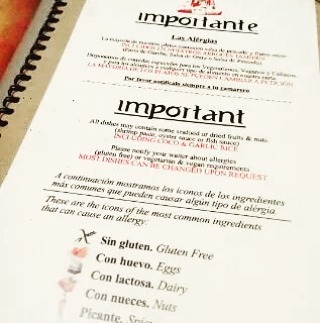 importante
Las Alérgias
La mayoría de nuestros platos contienen salsa de pescado y frutos secos
Por favor notifícalo siempre a tu camarero
important
All dishes may contain some seafood or dried fruits & nuts.
(shrimp paste, oyster sauce or fish sauce)
INCLUDING COCO & GARLIC RICE
Please notify your waiter about allergies
(gluten free) or vegetarian & vegan requirements
MOST DISHES CAN BE CHANGED UPON REQUEST
A continuación mostramos los iconos de los ingredientes
más comunes que pueden causar algún tipo de alérgia
These are the icons of the most common ingredients
that can cause an allergy:
Sin gluten. Gluten Free
Con huevo. Eggs
Con lactosa. Dairy
Con nueces. Nuts
Picante.